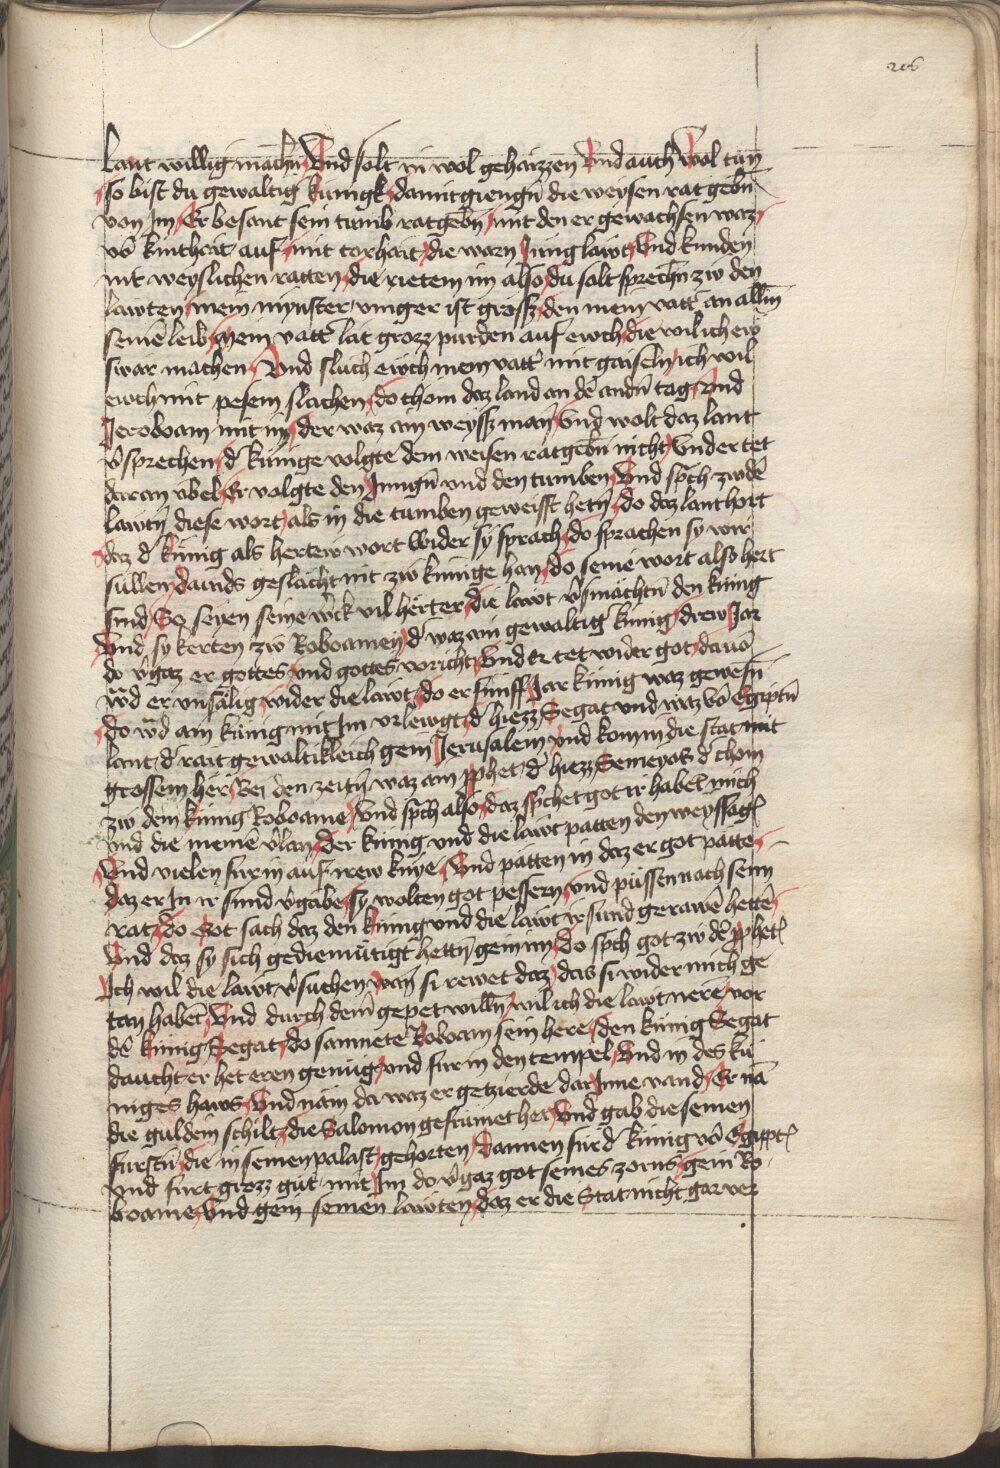 206
Laut willig machn̄ Vnd solt in wol gehaizzen Vnd auch Wol tun
so bist du gewaltig kunigk damit giengn̄ die weysen ratgebn̄
von Im Er besant sein tumb ratgebn̄ mit den er gewachsen waz
vō kinthait auf mit torhait die warn Jung läwt Vnd kunden
nit weyslichen ratten die rietem im also du solt sprechn̄ zw den
läwten mein mynster vinger ist grösz den mein vatt̄ an allm̄
seinē leib mein vatt̄ lät grozz purden auf ewch die wil ich ew
swar machen Vnd sluch ewch mein vatt̄ mit gaiseln ich wil
ewch mit pesem slachen do chom daz land an dē andn̄ tag Vnd
Jeroboam mit in der waz ain weysz man Vnd wolt daz lant
v̄sprechen d̄ künige volgte dem weisen ratgebn̄ nicht Vnd er tet
daran übel Er volgte den Jungn̄ vnd den tumben Vnd sp̄ch zw dē
läwtn̄ diese wort als in die tumben geweisst hetn̄ do daz lant hort
daz d̄ künig als hertew wort Wider sy sprach do sprachen sy wir
süllen dauids geslächt nit zw künige han do seine wort also hert
sind So seyen seine w̄ck vil herter die läwt v̄smächtn̄ den künig
Vnd sy kerten zw Roboamen d̄ waz ain gewaltig künig drew Jar
do v̄gaz er gottes vnd gottes voricht Vnd er tet wider got dauō
w̄d er vnsälig wider die läwt do er fünff Jar künig waz gewesn̄
do w̄d ain künig mit Im vrlewgt d̄ hiezz Segat vnd waz vō Egiptn̄
lant d̄ rait gewaltikleich gein Jerusalem vnd kom in die stat mit
grossem her Bei den zeitn̄ waz ain p̄phet d̄ hiezz Semeyas d̄ chom
zw dem künig Roboame Vnd sp̄ch also daz sp̄chet got ir habet mich
Vnd die meinē v̄lan Der künig vnd die läwt patten den weyssagn̄
Vnd vielen für in auf irew knye Vnd pätten in daz er got patte
daz er In ir sünd v̄gabe sy wolten got pessern vnd püssen nach seim
rat do Got sach daz den künig vnd die läwt ir sünd gerawē hettē
Vnd daz sy sich gediemütigt hettn̄ gein im do sp̄ch got zw dē p̄phetn̄
Ich wil die läwt v̄suchen wan si rewet daz das si wider mich ge
tan habet Vnd durch deins gepet willn̄ wil ich die läwt nerē vor
dē künig Segat do samnete Roboam sein here den künig Segat
daucht er het eren genüg vnd fur in den tempel Vnd in des kü
niges haws Vnd näm da waz er getzierde dar Inne vand Er nā
die guldein schilt die Salomon gefrümet het Vnd gab die seinen
fürstn̄ die in seinen palast gehorten Dannen für d̄ künig vō Egyptn̄
vnd fürt grozz gut mit Im do v̄gaz got seines zorns gein Ro
boame Vnd gein seinen läwten daz er die Stat nicht gar ver